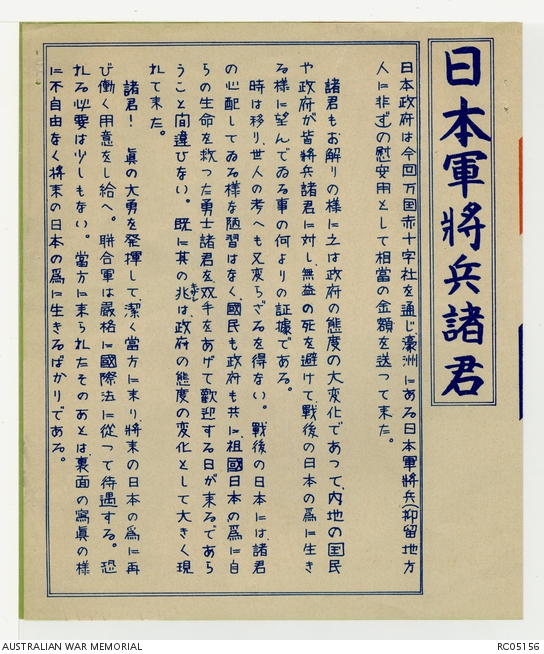 日本軍將兵諸君
日本政府は今回万国赤十字社を通じ、濠洲にある日本軍將兵(抑留地方
人に非ず)の慰安用として相當の金額を送って来た。
諸君もお解りの様に之は政府の態度の大変化であって、内地の国民
や政府が皆將兵諸君に対し、無益の死を避けて、戦後の日本の爲に生き
る様に望んでゐる事の何よりの証據である。
時は移り、世人の考へも又変らざるを得ない。戦後の日本には、諸君
の心配してゐる様な陋習はなく、國民も政府も共に、祖國日本の爲に自
らの生命を救った勇士諸君を、双手をあげて歓迎する日が来るであら
うこと間違ひない。既に其の兆は、政府の態度の変化として大きく現
きざし
れて来た。
諸君!眞の大勇を発揮して、潔く當方に来り、將来の日本の爲に再
び働く用意をし給へ。聯合軍は嚴格に國際法に従って待遇する。恐
れる必要は少しもない。當方に来られたそのあとは、裏面の寫眞の様
に不自由なく將来の日本の爲に生きるばかりである。
AUSTRALIAN WAR MEMORIAL
RC05156